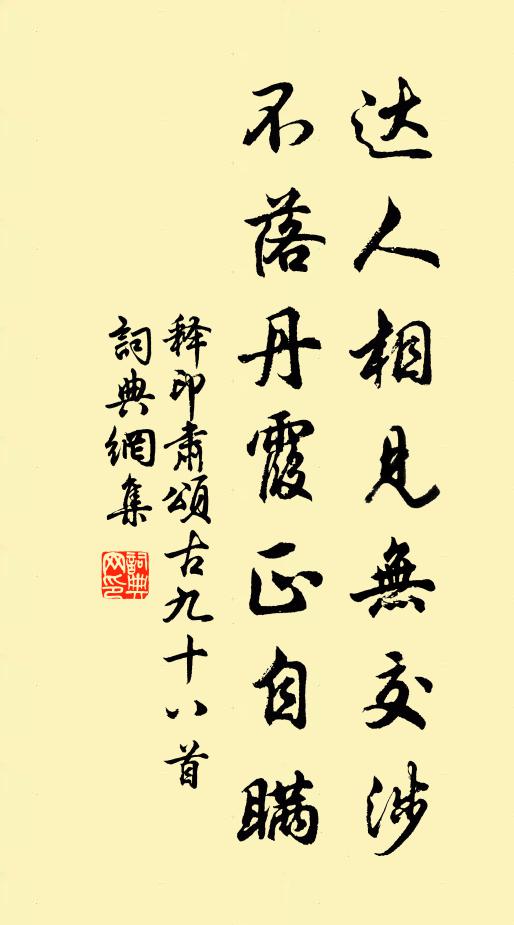 达人相见無交涉
不落丹霞正自瞒
释印肃頌古九十八首
詞典網集
詞典网印